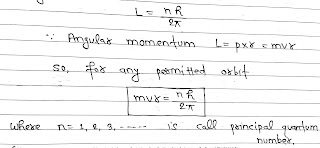 L = nh/2π
∵ Angular momentum L = p×r = mvr
so, for any permitted orbit
mvr = nh/2π
where n = 1, 2, 3, ----- is call principal quantum
number.